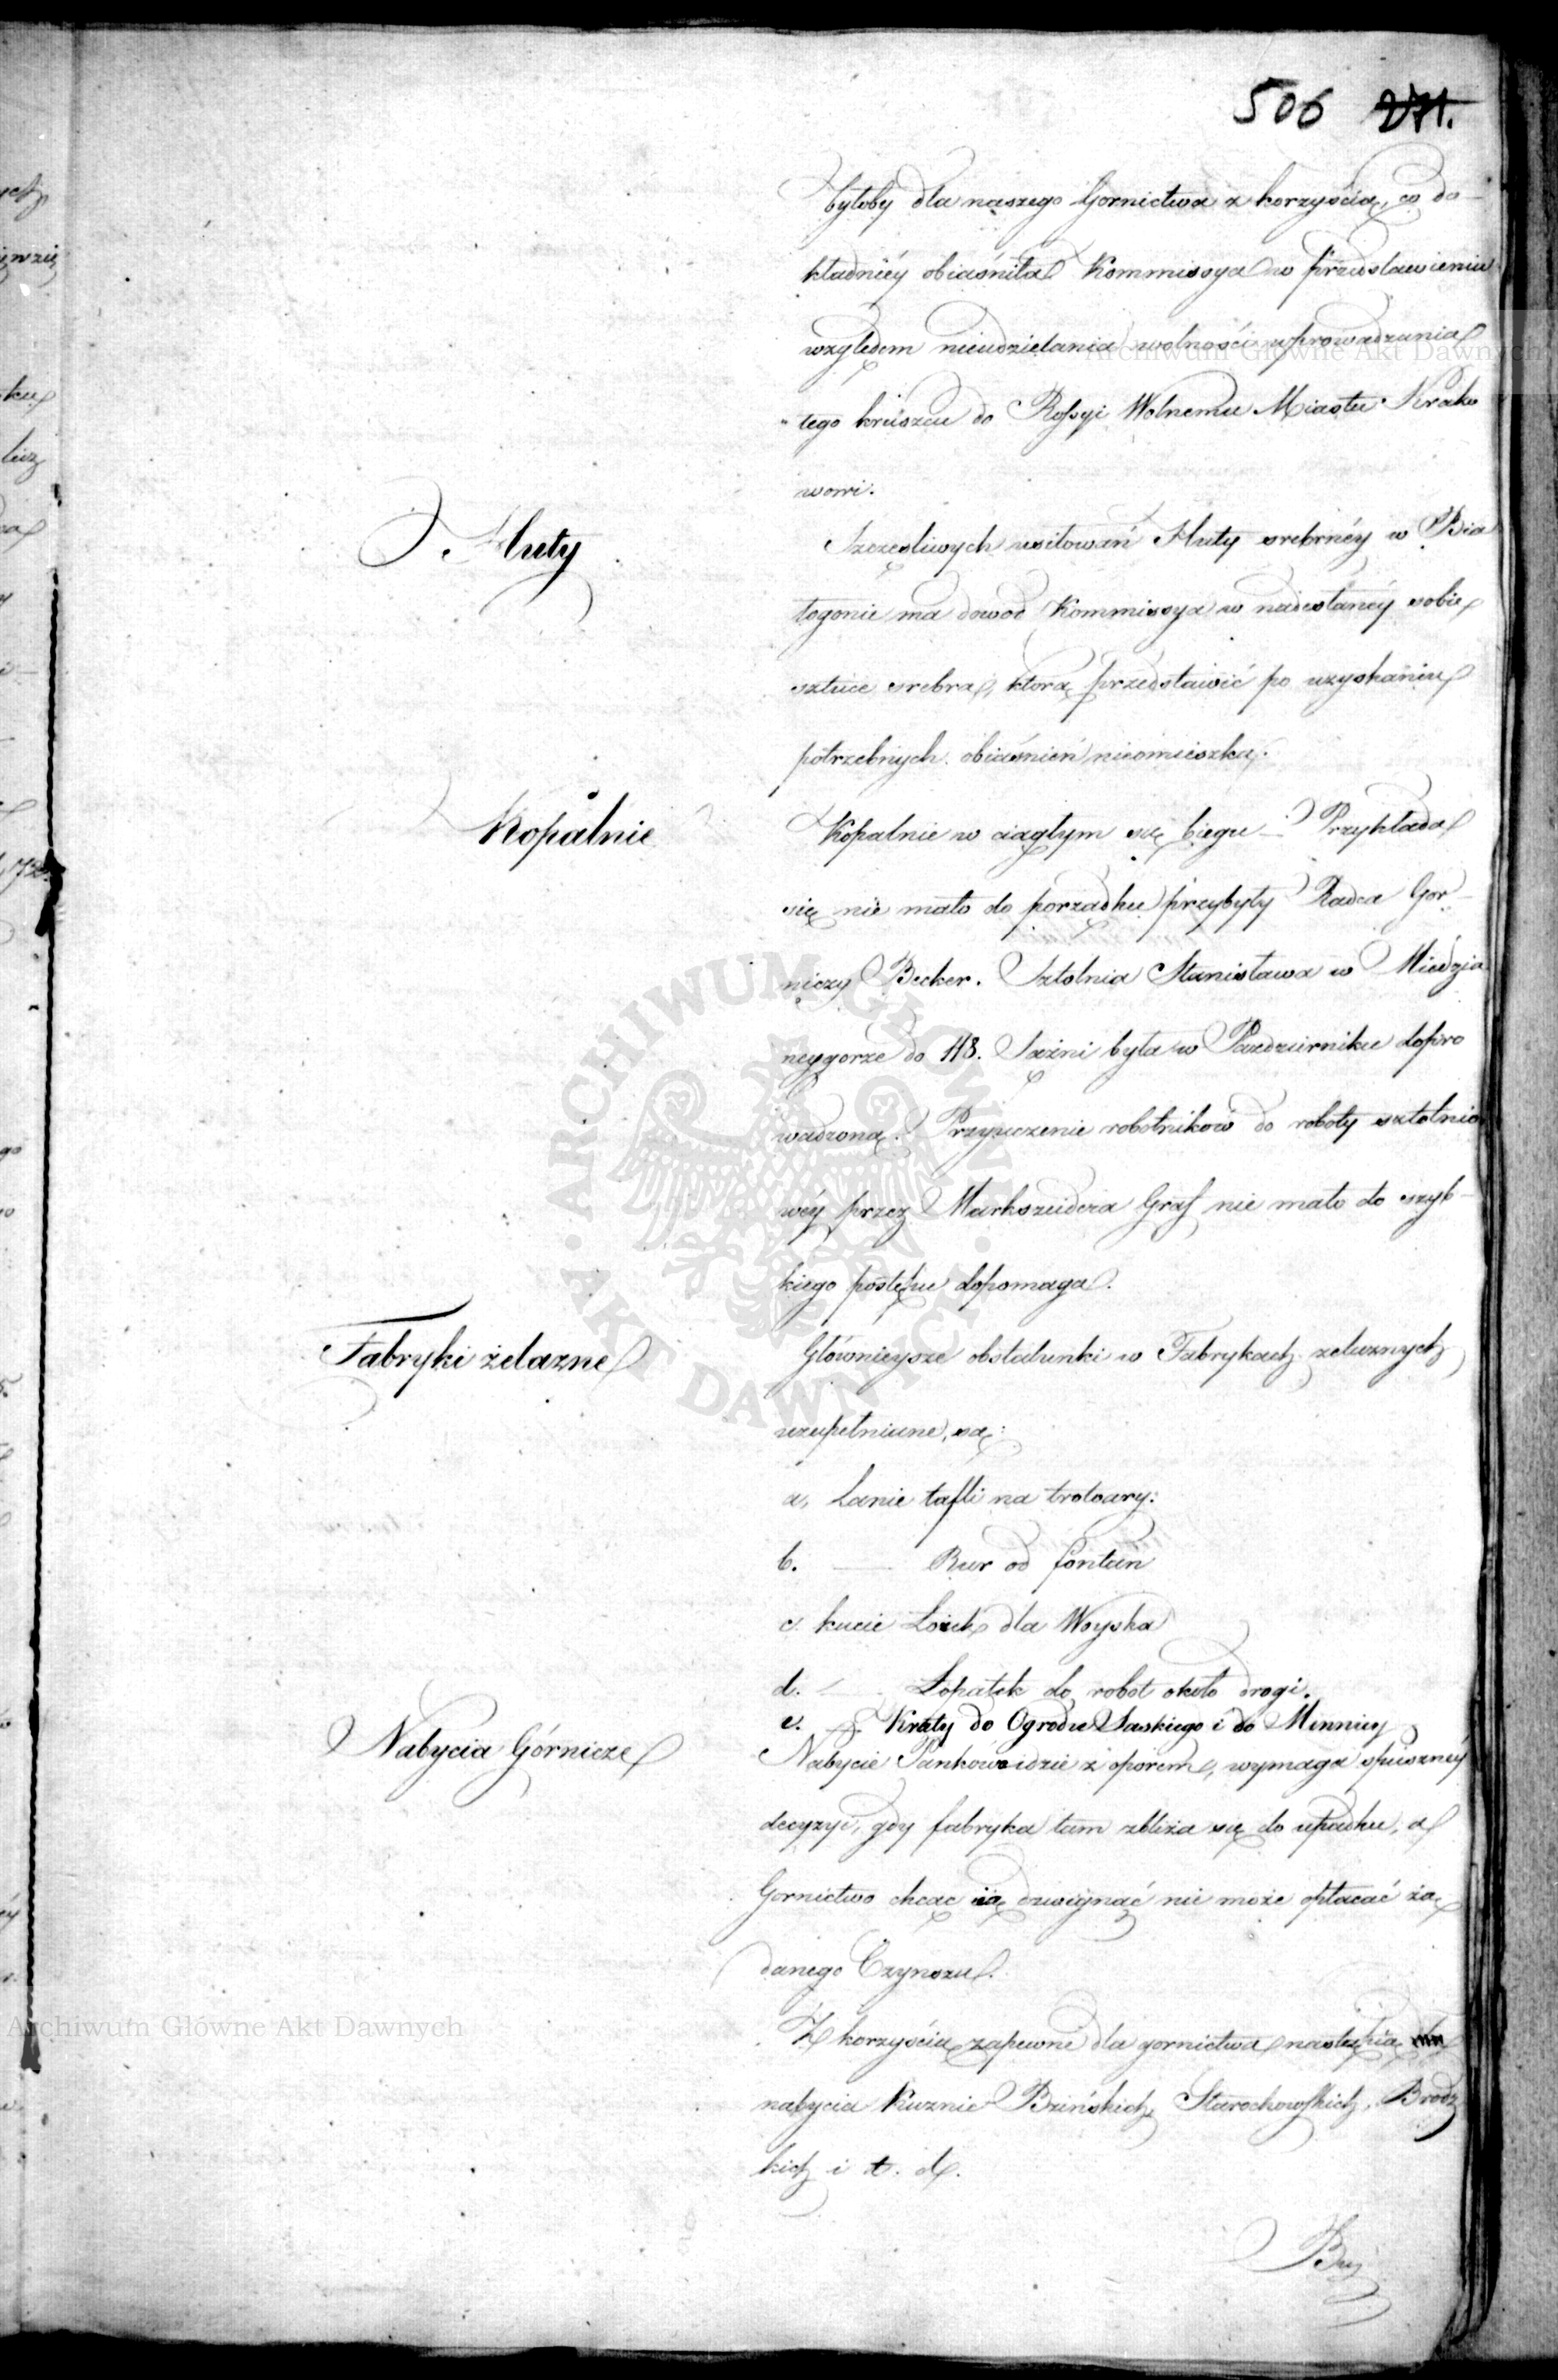 506 271.
byłoby dla naszego Gornictwa z korzyścią, co do-
kładniéy obiaśniła Kommissya w przedstawieniu
względem nieudzielania wolności wprowadzania
tego kruszcu do Rossyi Wolnemu Miastu Krako
wowi.
Huty
Szczęsliwych usiłowań Huty srebrnéy w Bia
łogonie ma dowod Kommissya w nadesłanéy sobie
sztuce srebra, ktorą przedstawić po uzyskaniu
potrzebnych obiaśnień nieomieszka.
Kopalnie
Kopalnie w ciągłym są biegu – Przykłada
się nie mało do porządku przybyły Radca Gor-
niczy Becker. Sztolnia Stanisława w Miedzia
neygorze do 118. Sążni była w Pazdzierniku dopro
wadzoną. Przyuczenie robotników do roboty sztolnio
wéy przez Markszeidera Graf nie mało do szyb-
kiego postępu dopomaga.
Fabryki żelazne
Głównieysze obstalunki w Fabrykach zelaznych
uzupełniane są:
a, Lanie tafli na trotoary:
b. —— Rur od fontan
c. kucie Łożek dla Woyska
d. —— Łopatek do robot około drogi.
e. — Kraty do Ogrodu Saskiego i do Minnicy
Nabycia Górnicze
Nabycie Pankowa idzie z oporem, wymaga spieszney
decyzyi, gdy fabryka tam zbliża się do upadku, a
Gornictwo chcąc ią dzwignąć nie może opłacać żą
danego Czynszu.
Z korzyścią zapewne dla gornictwa nastąpią
nabycia Kuznic Bzińskich, Starochowskich, Brodz
kich i t. d.
Archiwum Główne Akt Dawnych
Archiwum Główne Akt Dawnych
ARCHIWUM GŁÓWNE AKT DAWNYCH